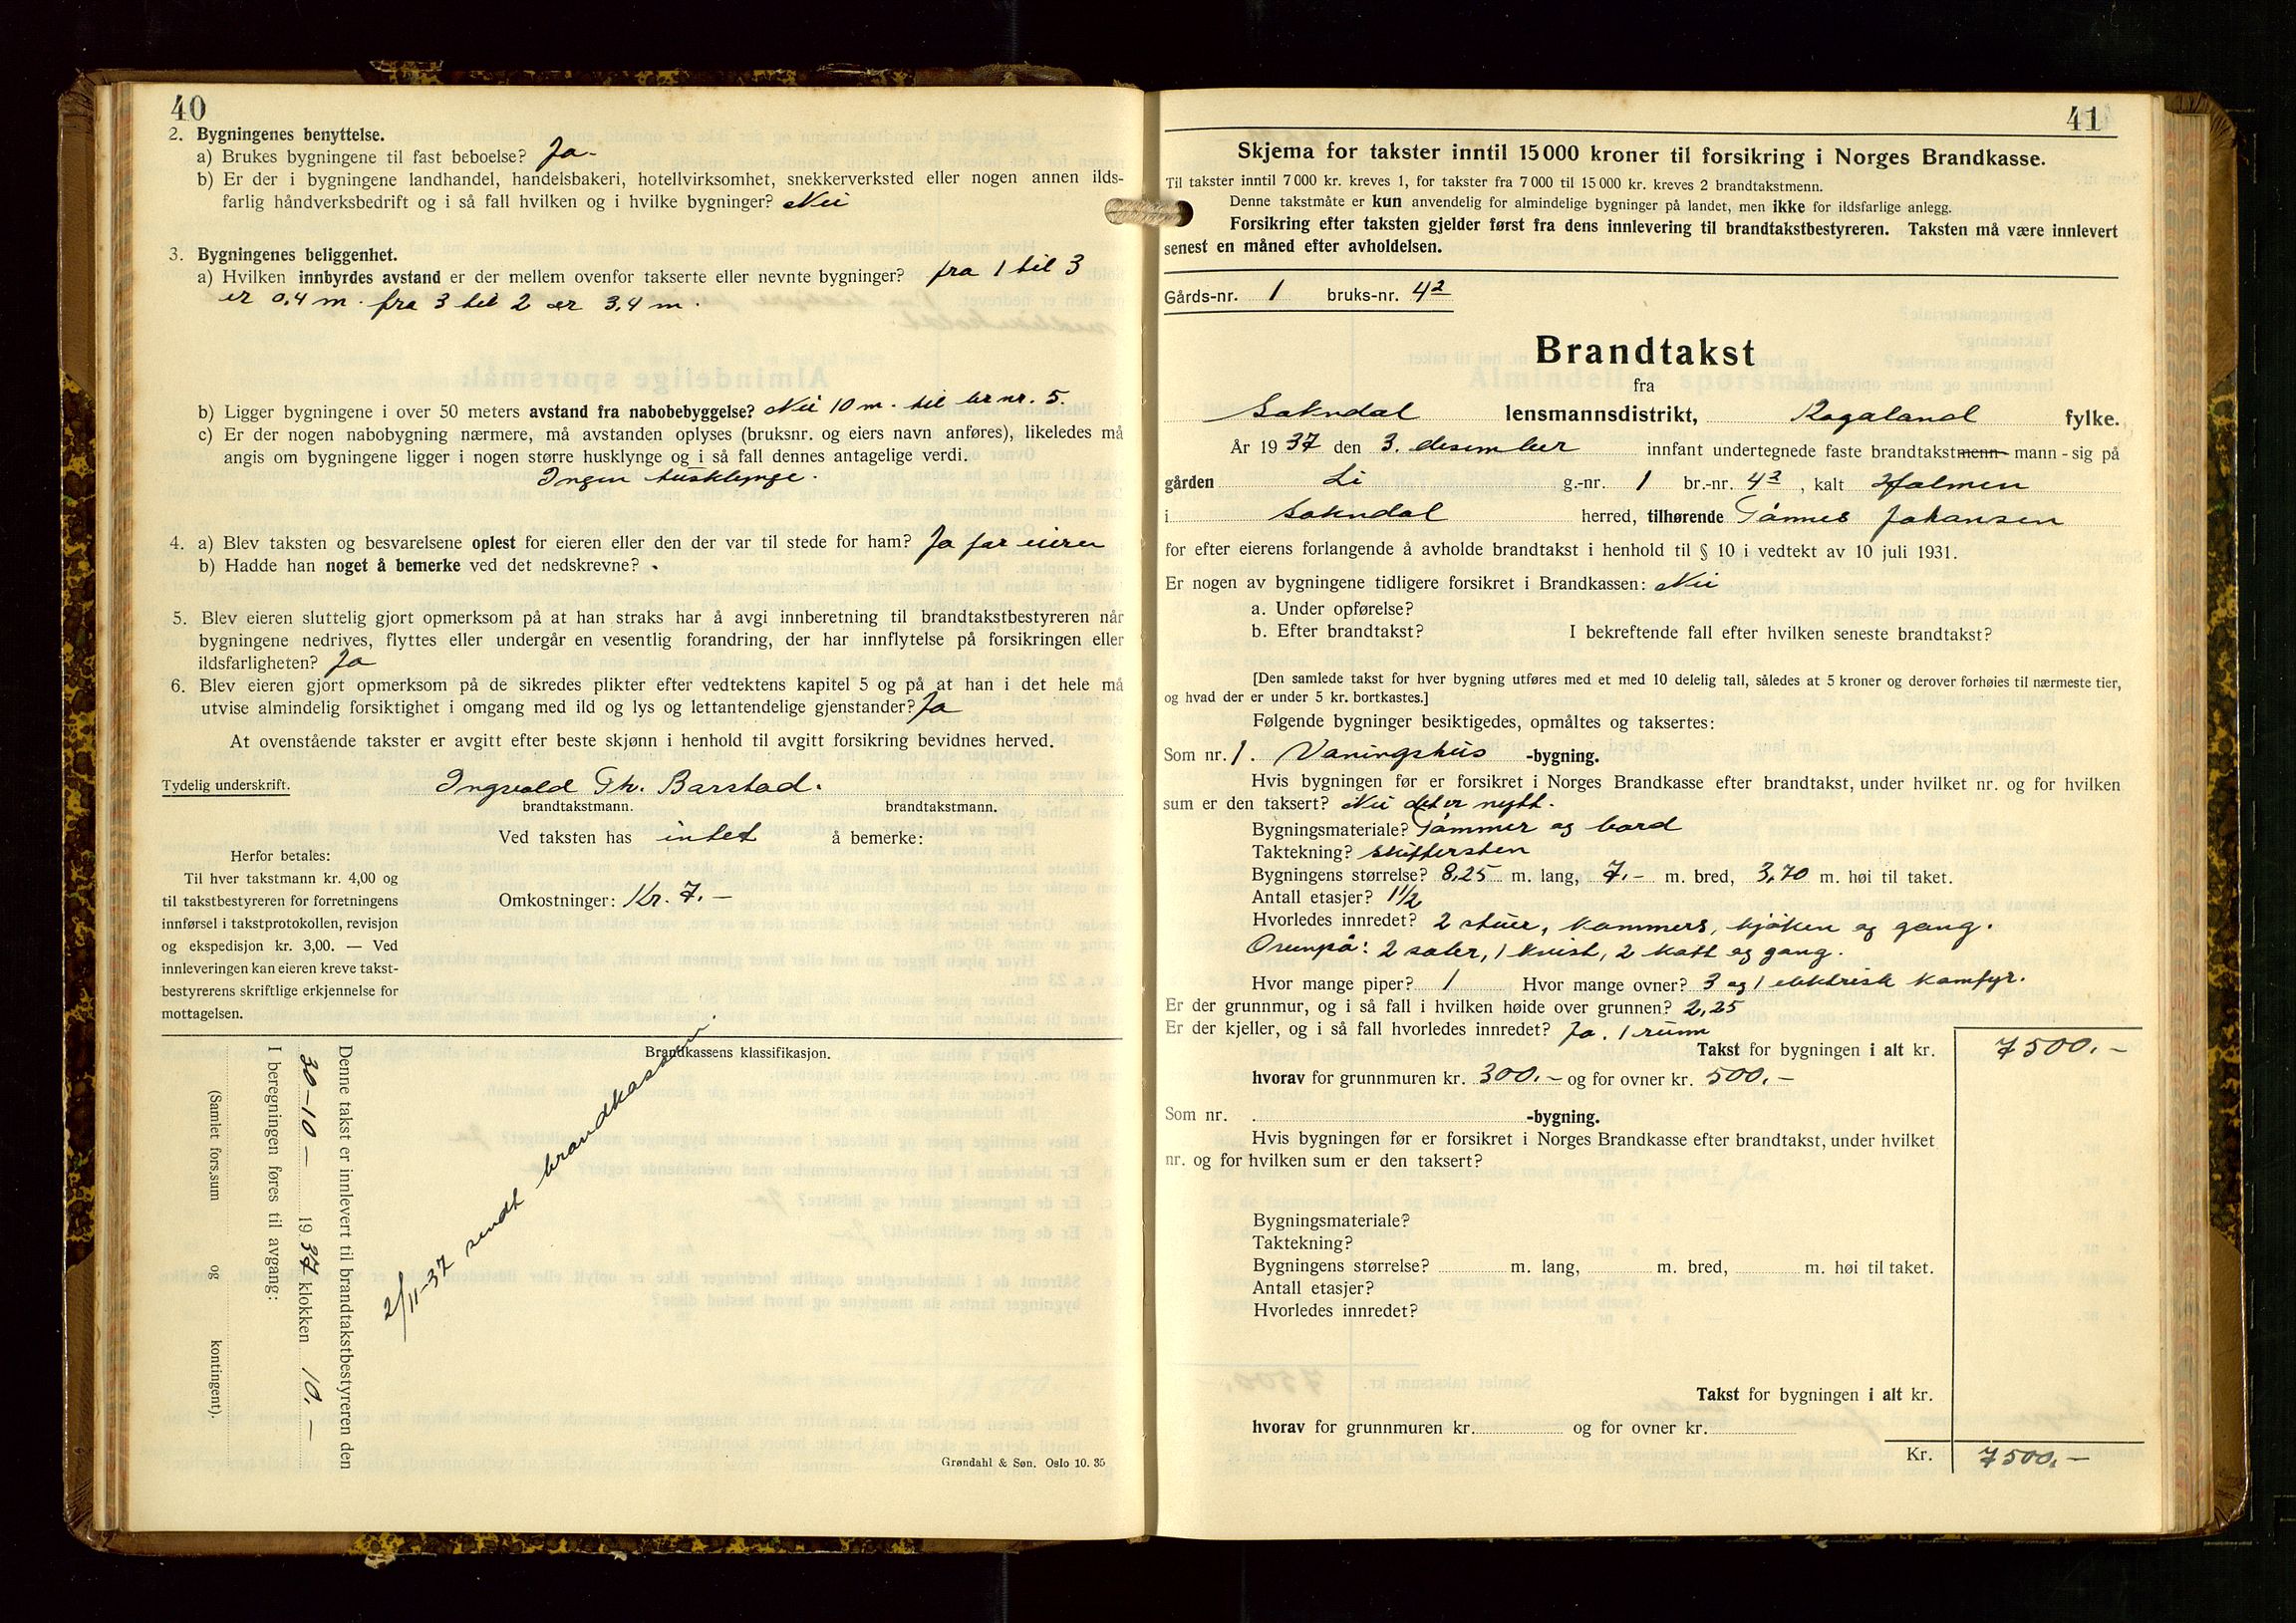 40
2. Bygningenes benyttelse.
a) Brukes bygningene til fast beboelse? Ja-
b) Er der i bygningene landhandel, handelsbakeri, hotellvirksomhet, snekkerverksted eller nogen annen ilds-
farlig håndverksbedrift og i så fall hvilken og i hvilke bygninger? Nei
3. Bygningenes beliggenhet.
a) Hvilken innbyrdes avstand er der mellem ovenfor takserte eller nevnte bygninger? fra 1 til 3
er 0,4 m. fra 3 til 2 er 3,4 m.
b) Ligger bygningene i over 50 meters avstand fra nabobebyggelse? Nei 10 m. til br nr. 5.
c) Er der nogen nabobygning nærmere, må avstanden oplyses (bruksnr. og eiers navn anføres), likeledes må
angis om bygningene ligger i nogen større husklynge og i så fall dennes antagelige verdi.
Ingen husklynge.
4. a) Blev taksten og besvarelsene oplest for eieren eller den der var til stede for ham? Ja for eieren
b) Hadde han noget å bemerke ved det nedskrevne?
5. Blev eieren sluttelig gjort opmerksom på at han straks har å avgi innberetning til brandtakstbestyreren når
bygningene nedrives, flyttes eller undergår en vesentlig forandring, der har innflytelse på forsikringen eller
ildsfarligheten? Ja
6. Blev eieren gjort opmerksom på de sikredes plikter efter vedtektens kapitel 5 og på at han i det hele må
utvise almindelig forsiktighet i omgang med ild og lys og lettantendelige gjenstander? Ja
At ovenstående takster er avgitt efter beste skjønn i henhold til avgitt forsikring bevidnes herved.
Tydelig underskrift. Ingvald Th. Barstad.
brandtakstmann. brandtakstmann.
Ved taksten has intet å bemerke:
Herfor betales:
Til hver takstmann kr. 4,00 og
til takstbestyreren for forretningens
innførsel i takstprotokollen, revisjon
og ekspedisjon kr. 3,00. — Ved
innleveringen kan eieren kreve takst-
bestyrerens skriftlige erkjennelse for
mottagelsen.
Omkostninger: Kr. 7.-
Brandkassens klassifikasjon.
Denne takst er innlevert til brandtakstbestyreren den
30-10- 1937 klokken 10.-
I beregningen føres til avgang:
(Samlet fors.sum og kontingent).
2/11-37 sendt brandkassen.
Grøndahl & Søn. Oslo 10. 35
41
Skjema for takster inntil 15000 kroner til forsikring i Norges Brandkasse.
Til takster inntil 7 000 kr. kreves 1, for takster fra 7 000 til 15 000 kr. kreves 2 brandtakstmenn.
Denne takstmåte er kun anvendelig for almindelige bygninger på landet, men ikke for ildsfarlige anlegg.
Forsikring efter taksten gjelder først fra dens innlevering til brandtakstbestyreren. Taksten må være innlevert
senest en måned efter avholdelsen.
Gårds-nr. 1 bruks-nr. 42
Brandtakst
fra
Sokndal lensmannsdistrikt, Rogaland fylke.
År 1937 den 3. desember innfant undertegnede faste brandtakstmenn- mann - sig på
gården Li g.-nr. 1 br.-nr. 42, kalt Holmen
i Sokndal herred, tilhørende Tønnes Johansen
for efter eierens forlangende å avholde brandtakst i henhold til § 10 i vedtekt av 10 juli 1931.
Er nogen av bygningene tidligere forsikret i Brandkassen: Nei
a. Under opførelse?
b. Efter brandtakst? I bekreftende fall efter hvilken seneste brandtakst?
[Den samlede takst for hver bygning utføres med et med 10 delelig tall, således at 5 kroner og derover forhøies til nærmeste tier,
og hvad der er under 5 kr. bortkastes.]
Følgende bygninger besiktigedes, opmåltes og taksertes:
Som nr. 1. Vaningshus -bygning.
Hvis bygningen før er forsikret i Norges Brandkasse efter brandtakst, under hvilket nr. og for hvilken
sum er den taksert? Nei det er nytt.
Bygningsmateriale? Tømmer og bord
Taktekning? Skiffersten
Bygningens størrelse? 8,25 m. lang, 7.- m. bred, 3,70 m. høi til taket.
Antall etasjer? 1 1/2
Hvorledes innredet? 2 stuer, kammers, kjøken og gang.
Ovenpå: 2 saler, 1 kvist, 2 kott og gang.
Hvor mange piper? 1 Hvor mange ovner? 3 og 1 elektrisk komfyr.
Er der grunnmur, og i så fall i hvilken høide over grunnen? 2,25
Er der kjeller, og i så fall hvorledes innredet? Ja. 1 rum
Takst for bygningen i alt kr. 7500.-
hvorav for grunnmuren kr. 300.- og for ovner kr. 500.-
Som nr. -bygning.
Hvis bygningen før er forsikret i Norges Brandkasse efter brandtakst, under hvilket
nr. og for hvilken sum er den taksert?
Bygningsmateriale?
Taktekning?
Bygningens størrelse? m. lang, m. bred, m. høi til taket.
Antall etasjer?
Hvorledes innredet?
Takst for bygningen i alt kr.
hvorav for grunnmuren kr. og for ovner kr.
Kr. 7500.-